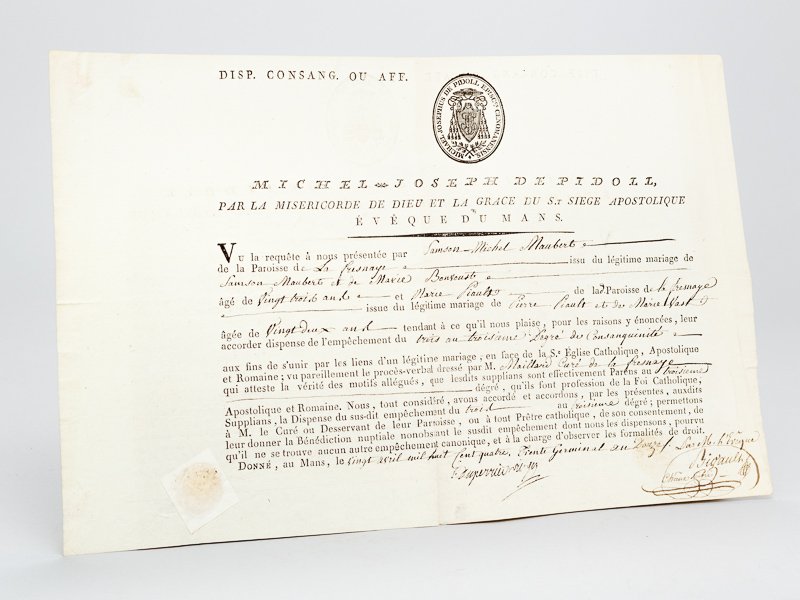 DISP. CONSANG. OU AFF.
MICHAEL JOSEPHUS DE PIDOLL EPISCOPUS CENOMANENSIS
MICHEL-JOSEPH DE PIDOLL,
PAR LA MISERICORDE DE DIEU ET LA GRACE DU S.T SIEGE APOSTOLIQUE
ÉVÊQUE DU MANS.
VU la requête à nous présentée par Samson-Michel Maubert
de la Paroisse de La fresnaye issu du légitime mariage de
Samson Maubert et de Marie
âgé de vingt trois ans et Marie Piault de la Paroisse de la fresnaye
issue du légitime mariage de Pierre Piault et de Marie Vast
âgée de Vingt deux ans tendant à ce qu'il nous plaise, pour les raisons y énoncées, leur
accorder dispense de l'empêchement du trois au troisieme Degré de Consanguinité
aux fins de s'unir par les liens d'un légitime mariage, en face de la S.e Église Catholique, Apostolique
et Romaine; vu pareillement le procès-verbal dressé par M. Maillard Curé de la fresnaye
qui atteste la vérité des motifs allégués, que lesdits supplians sont effectivement Parens au troisieme
dégré, qu'ils font profession de la Foi Catholique,
Apostolique et Romaine. Nous, tout considéré, avons accordé et accordons, par les présentes, auxdits
Supplians, la Dispense du sus-dit empêchement du trois au troisieme dégré; permettons
à M. le Curé ou Desservant de leur Paroisse, ou à tout Prêtre catholique, de son consentement, de
leur donner la Bénédiction nuptiale nonobsant le susdit empêchement dont nous les dispensons, pourvu
qu'il ne se trouve aucun autre empêchement canonique, et à la charge d'observer les formalités de droit.
DONNÉ, au Mans, le vingt avril mil huit Cent quatre, Trente Germinal an Douze. Par M. l'Evêque
Duperrier